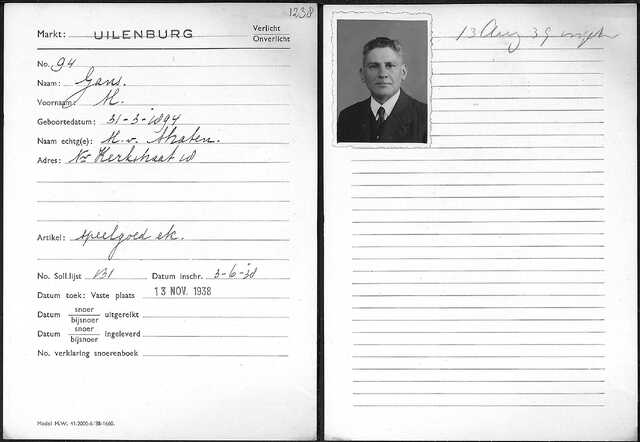 1238
Markt: UILENBURG
Verlicht
Onverlicht
No. 94
Naam: Gans.
Voornaam: M.
Geboortedatum: 31-3-1894
Naam echtg(e): M. v. Straten.
Adres: Nw Kerkstraat 18
Artikel: speelgoed ek.
No. Soll.lijst 131 Datum inschr. 3-6-38
Datum toek: Vaste plaats 13 NOV. 1938
Datum snoer uitgereikt
bijsnoer
Datum snoer ingeleverd
bijsnoer
No. verklaring snoerenboek
Model M.W. 41-2000-6-'38-1660.
13 Aug 39